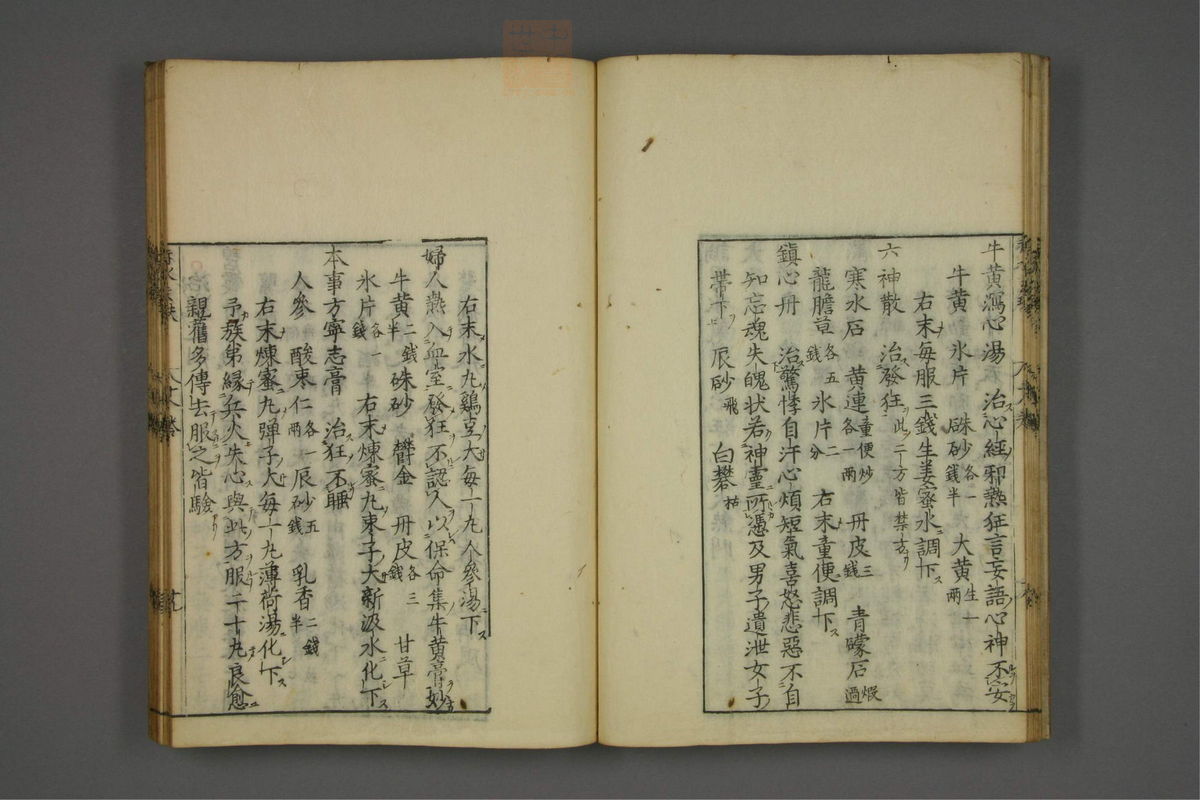 牛黃瀉心湯 治心經邪熱狂言妄語心神不安
牛黃 氷片 硃砂各一錢半 大黃生一兩
右末每服三錢生姜蜜水調下
六神散 治發狂此二方皆禁方
寒水石 黄連童便炒各一兩 丹皮三錢 青礞石煅過
龍膽草各五錢 氷片二分 右末童便調下
鎮心丹 治驚悸自汗心煩短氣喜怒悲惡不自
知忘魂失魄状若神靈所憑及男子遺泄女子
帶下 辰砂飛 白礬枯
右末水丸鷄豆大每一丸人參湯下
婦人熱入血室發狂不認人以保命集牛黃膏妙
牛黄二錢半 硃砂 欝金 丹皮各三錢 甘草
氷片各一錢 右末煉蜜丸棗子大新汲水化下
本事方寧志膏 治狂不睡
人參 酸棗仁各一兩 辰砂五錢 乳香二錢半
右末煉蜜丸弾子大每一丸薄荷湯化下
予族弟緣兵火失心與此方服二十丸良愈
親舊多傳去服之皆驗